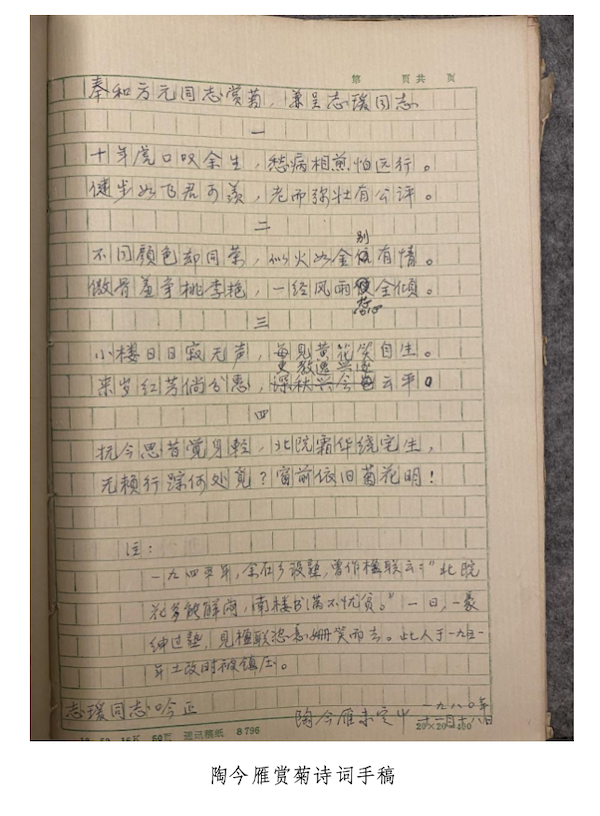 第 页共 页
奉和方元同志赏菊，兼呈志瑗同志
一
十年虎口叹余生，愁病相煎怕远行。
健步如飞君可羡，老而弥壮有公评。
二
别
不同颜色却同荣，似火如金有情。
傲骨羞争桃李艳，一经风雨全倾。
三
小楼日日寂无声，每见黄花笑自生。
更教逸兴逐
来岁红芳倘分惠，深秋兴会与云平。
四
抚今思昔觉身轻，北院霜华绕宅生，
无赖行踪何处觅？窗前依旧菊花明！
注：
一九四五年，余在乡设塾，曾作楹联云：“北院
花多能解闷，南楼书满不忧贫。”一日，一豪
绅过塾，见楹联姗笑而去。此人于一九五一
年土改时被镇压。
志瑗同志吟正
陶今雁未定草 一九八〇年
十一月十八日
16K 50页 通讯稿纸 8796
20×20=400
陶今雁赏菊诗词手稿